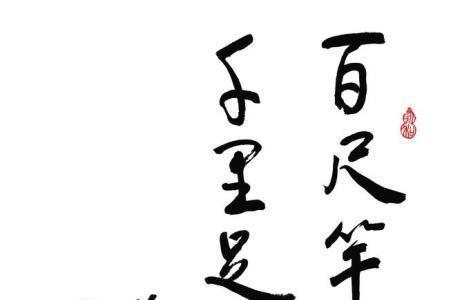 百尺竿
千里足